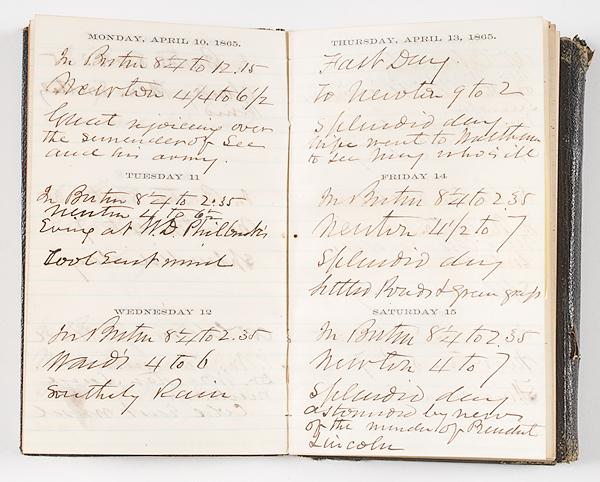 MONDAY, APRIL 10, 1865.
In Boston 8 1/4 to 12.15
Newton 4 1/4 to 6 1/2
Great rejoicing over
the surrender of Lee
and his army.
TUESDAY 11
In Boston 8 1/4 to 2.35
Newton 4 to 6
Eving at W.D. Philbrick's
Cool East wind
WEDNESDAY 12
In Boston 8 1/4 to 2.35
Ward's 4 to 6
Southerly Rain
THURSDAY, APRIL 13, 1865.
Fast Day.
to Newton 9 to 2
Splendid day
wife went to Waltham
to see Mary who is ill
FRIDAY 14
In Boston 8 1/4 to 2.35
Newton 4 1/2 to 7
Splendid day
settled Roads & green grass
SATURDAY 15
In Boston 8 1/4 to 2.35
Newton 4 to 7
Splendid day
astonished by news
of the murder of President
Lincoln